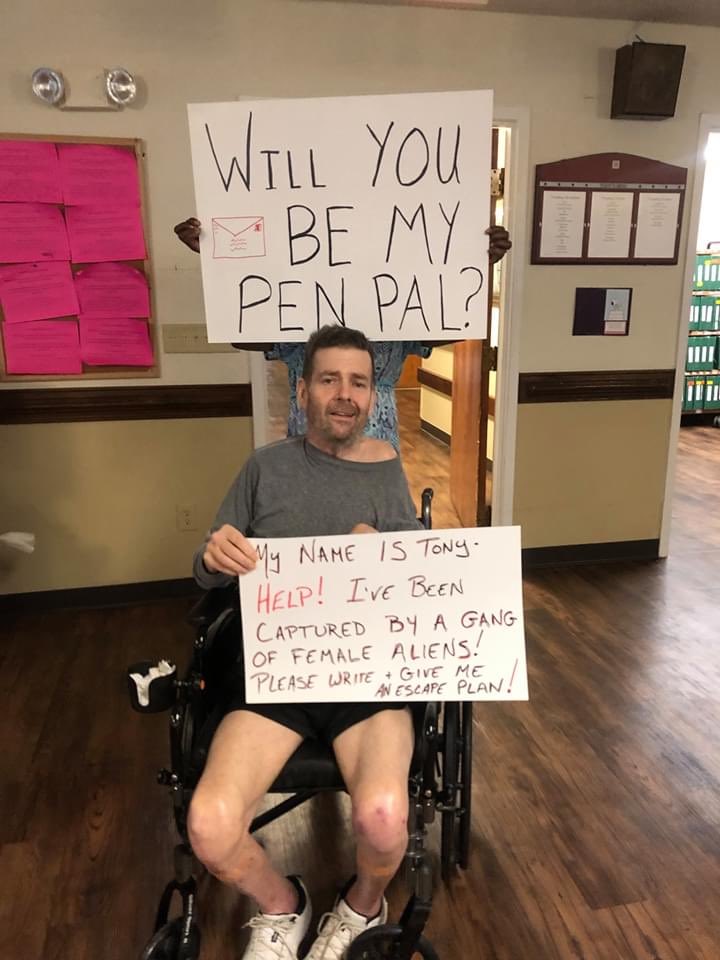 WILL YOU
BE MY
PEN PAL?
MY NAME IS TONY.
HELP! I'VE BEEN
CAPTURED BY A GANG
OF FEMALE ALIENS!
PLEASE WRITE + GIVE ME
AN ESCAPE PLAN!